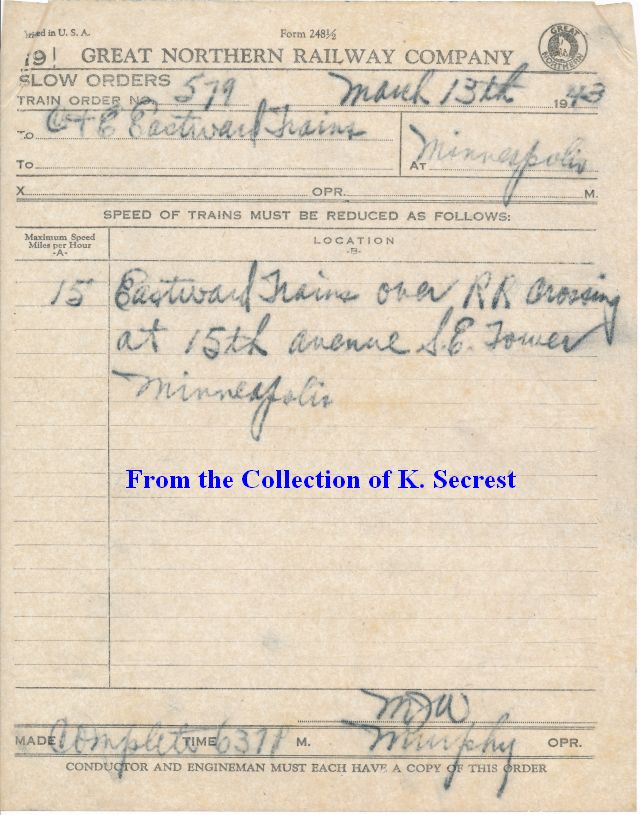 Printed in U. S. A. Form 248½
191 GREAT NORTHERN RAILWAY COMPANY
GREAT NORTHERN
SLOW ORDERS
TRAIN ORDER NO. 579 March 13th 1943
To C+E Eastward Trains
To AT Minneapolis
X OPR. M.
SPEED OF TRAINS MUST BE REDUCED AS FOLLOWS:
Maximum Speed
Miles per Hour
-A-
LOCATION
-B-
15 Eastward Trains over RR Crossing
at 15th avenue S.E. Tower
Minneapolis
From the Collection of K. Secrest
MADE Complete TIME M. Murphy OPR.
CONDUCTOR AND ENGINEMAN MUST EACH HAVE A COPY OF THIS ORDER